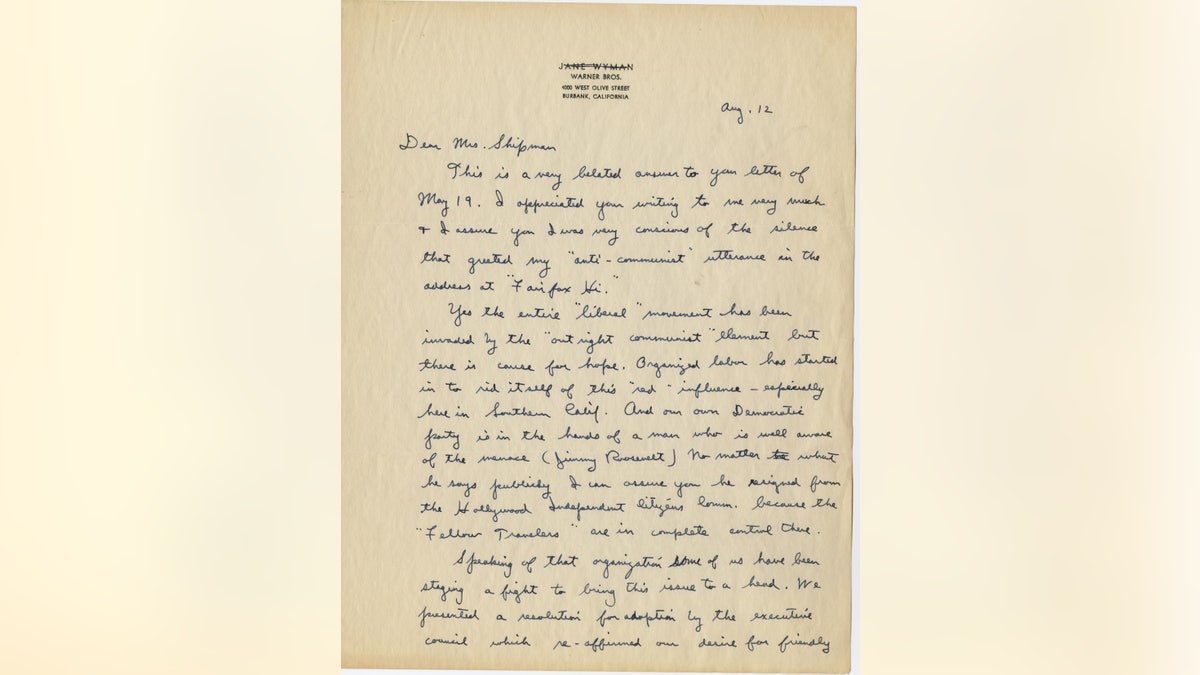 JANE WYMAN
WARNER BROS.
4000 WEST OLIVE STREET
BURBANK, CALIFORNIA
Aug. 12
Dear Mrs. Shipman
This is a very belated answer to your letter of
May 19. I appreciated your writing to me very much
+ I assure you I was very conscious of the silence
that greeted my "anti-communist" utterance in the
address at "Fairfax Hi."
Yes the entire "liberal" movement has been
invaded by the "out right communist" element but
there is cause for hope. Organized labor has started
in to rid itself of this "red" influence – especially
here in Southern Calif. And our own Democratic
party is in the hands of a man who is well aware
of the menace (Jimmy Roosevelt) No matter what
he says publicly I can assure you he resigned from
the Hollywood Independent Citizens Comm. because the
"Fellow Travelers" are in complete control there.
Speaking of that organization some of us have been
staging a fight to bring this issue to a head. We
presented a resolution for adoption by the executive
council which re-affirmed our desire for friendly